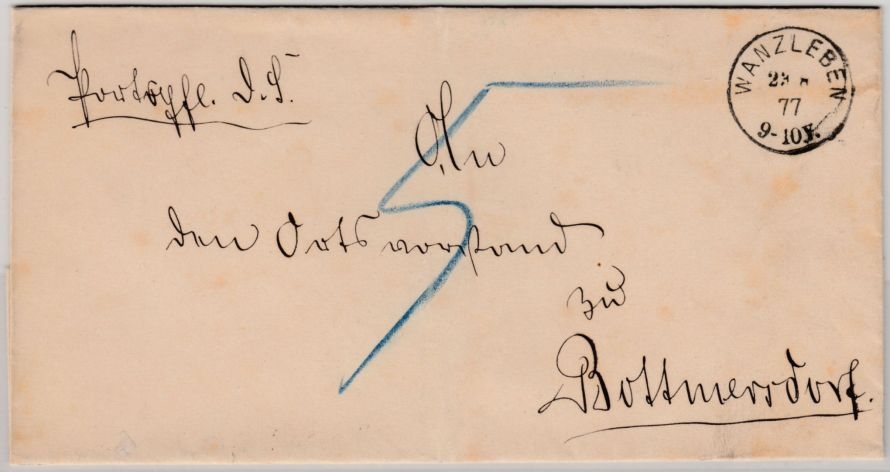 Portopfl. D. S.
WANZLEBEN
77
9-10 V.
5
An
den Ortsvorstand
zu
Bottmersdorf.